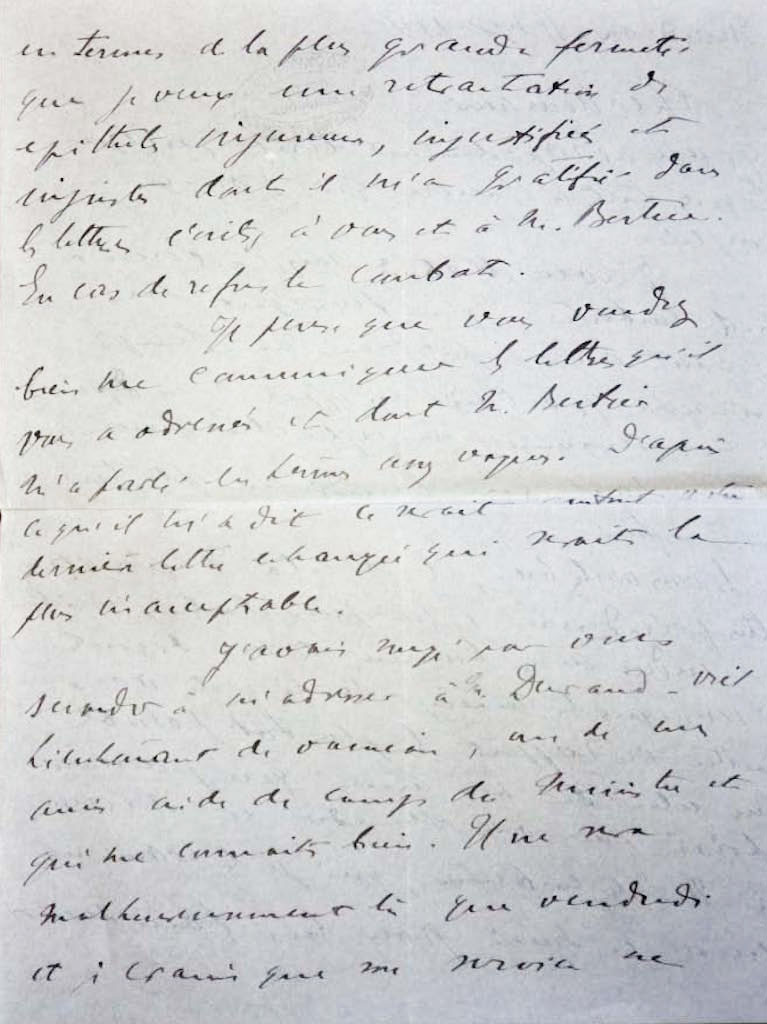 en termes de la plus grande fermeté
que je veux une rétractation des
épithètes injurieuses, injustifiées et
injustes dont il m'a gratifié dans
les lettres écrites à vous et à M. Bertier.
En cas de refus le combat.
Je pense que vous voudrez
bien me communiquer les lettres qu'il
vous a adressées et dont M. Bertier
m'a parlé en termes assez vagues. D'après
ce qu'il m'a dit ce serait surtout votre
dernière lettre échangée qui serait la
plus inacceptable.
J'avais songé pour vous
seconder à m'adresser à M. Durand-Viel
lieutenant de vaisseau, un de mes
amis aide de camp du Ministre et
qui me connait bien. Il ne sera
malheureusement là que vendredi
et je crains que mon service ne